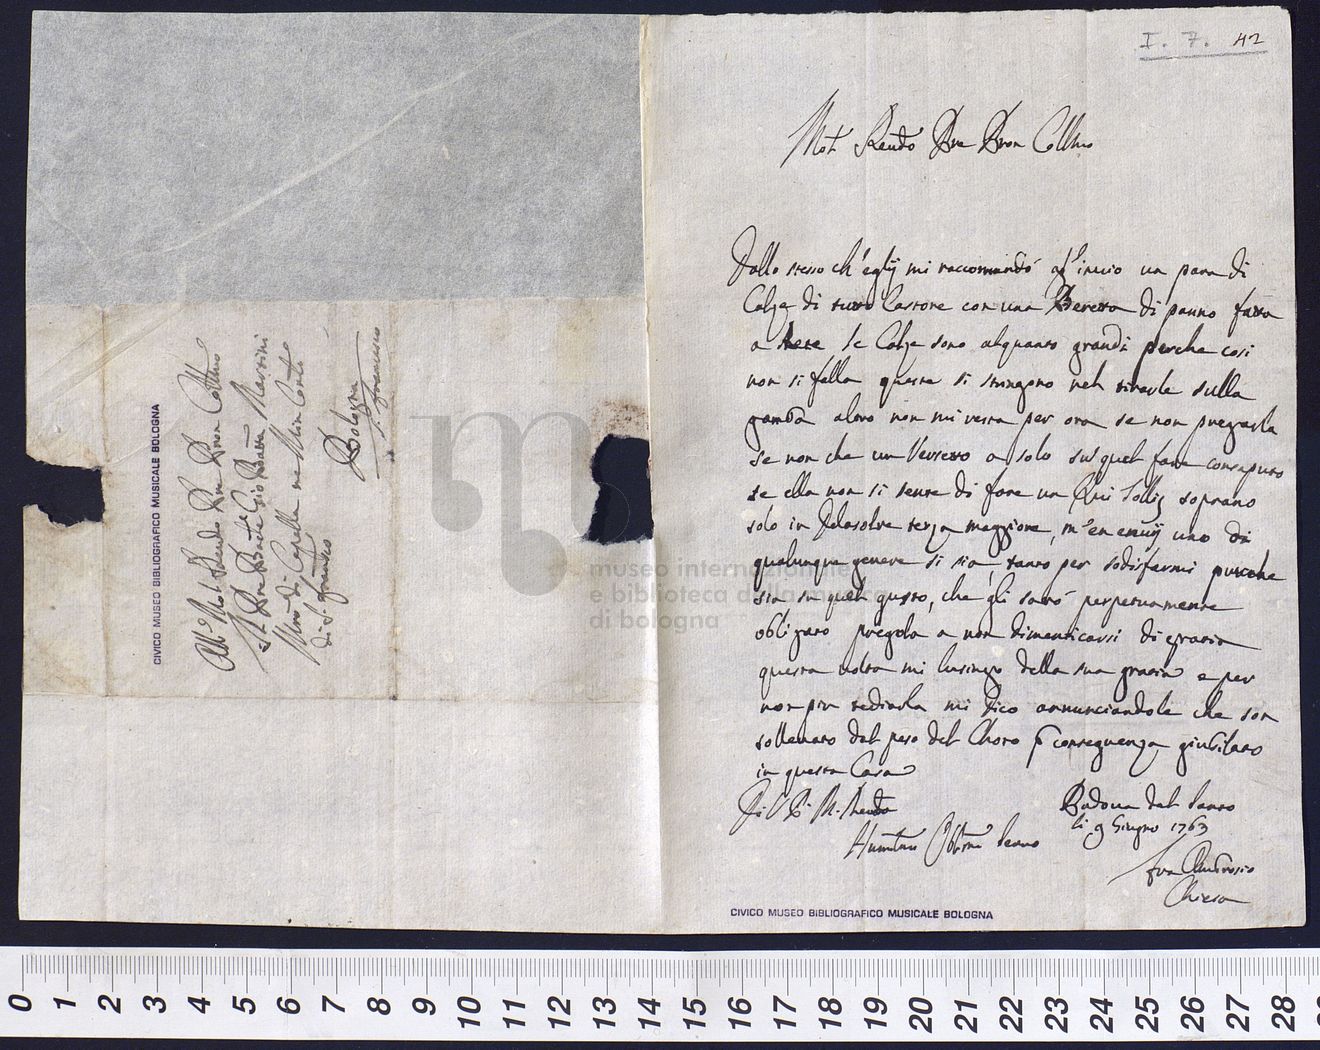 I. 7. 42
Mol. Rendo Pre Pron Collmo
Dallo stesso ch'eglj mi raccomandó gl'invio un para di
Calze di tutto Castore con una Beretta di panno fatta
a Rete le Calze sono alquanto grandi perche cosi
non si falla queste si stringono nel tirarle sulla
gamba altro non mi resta per ora se non pregarla
se non che un Versetto a solo sul quel fare consaputo
se ella non si sente di fare un Qui Tollis soprano
solo in Delasolre terza maggiore, m'en envij uno di
qualunque genere si sia tanto per sodisfarmi purche
sia su quel gusto, che gli saró perpetuamente
obligato pregola a non dimenticarsi di grazia
questa volta mi lusingo della sua grazia e per
non piu tediarla mi dico annunciandole che son
sollevato dal peso del Choro p conseguenza giubilato
in questa Casa
Di V. P. M. Renda
Padova dal Santo
li 9 Giugno 1763
Humilmo Obbmo Servo
Fra Ambrosio
Chiesa
CIVICO MUSEO BIBLIOGRAFICO MUSICALE BOLOGNA
All Mol. Rendo Pre Pron Collmo
Il Pre Gio Batta Martini
Mro di Capella ne Min Conti
di S. Franco
Bologna
S. Francesco
CIVICO MUSEO BIBLIOGRAFICO MUSICALE BOLOGNA
museo internazionale
e biblioteca della musica
di bologna
0 1 2 3 4 5 6 7 8 9 10 11 12 13 14 15 16 17 18 19 20 21 22 23 24 25 26 27 28